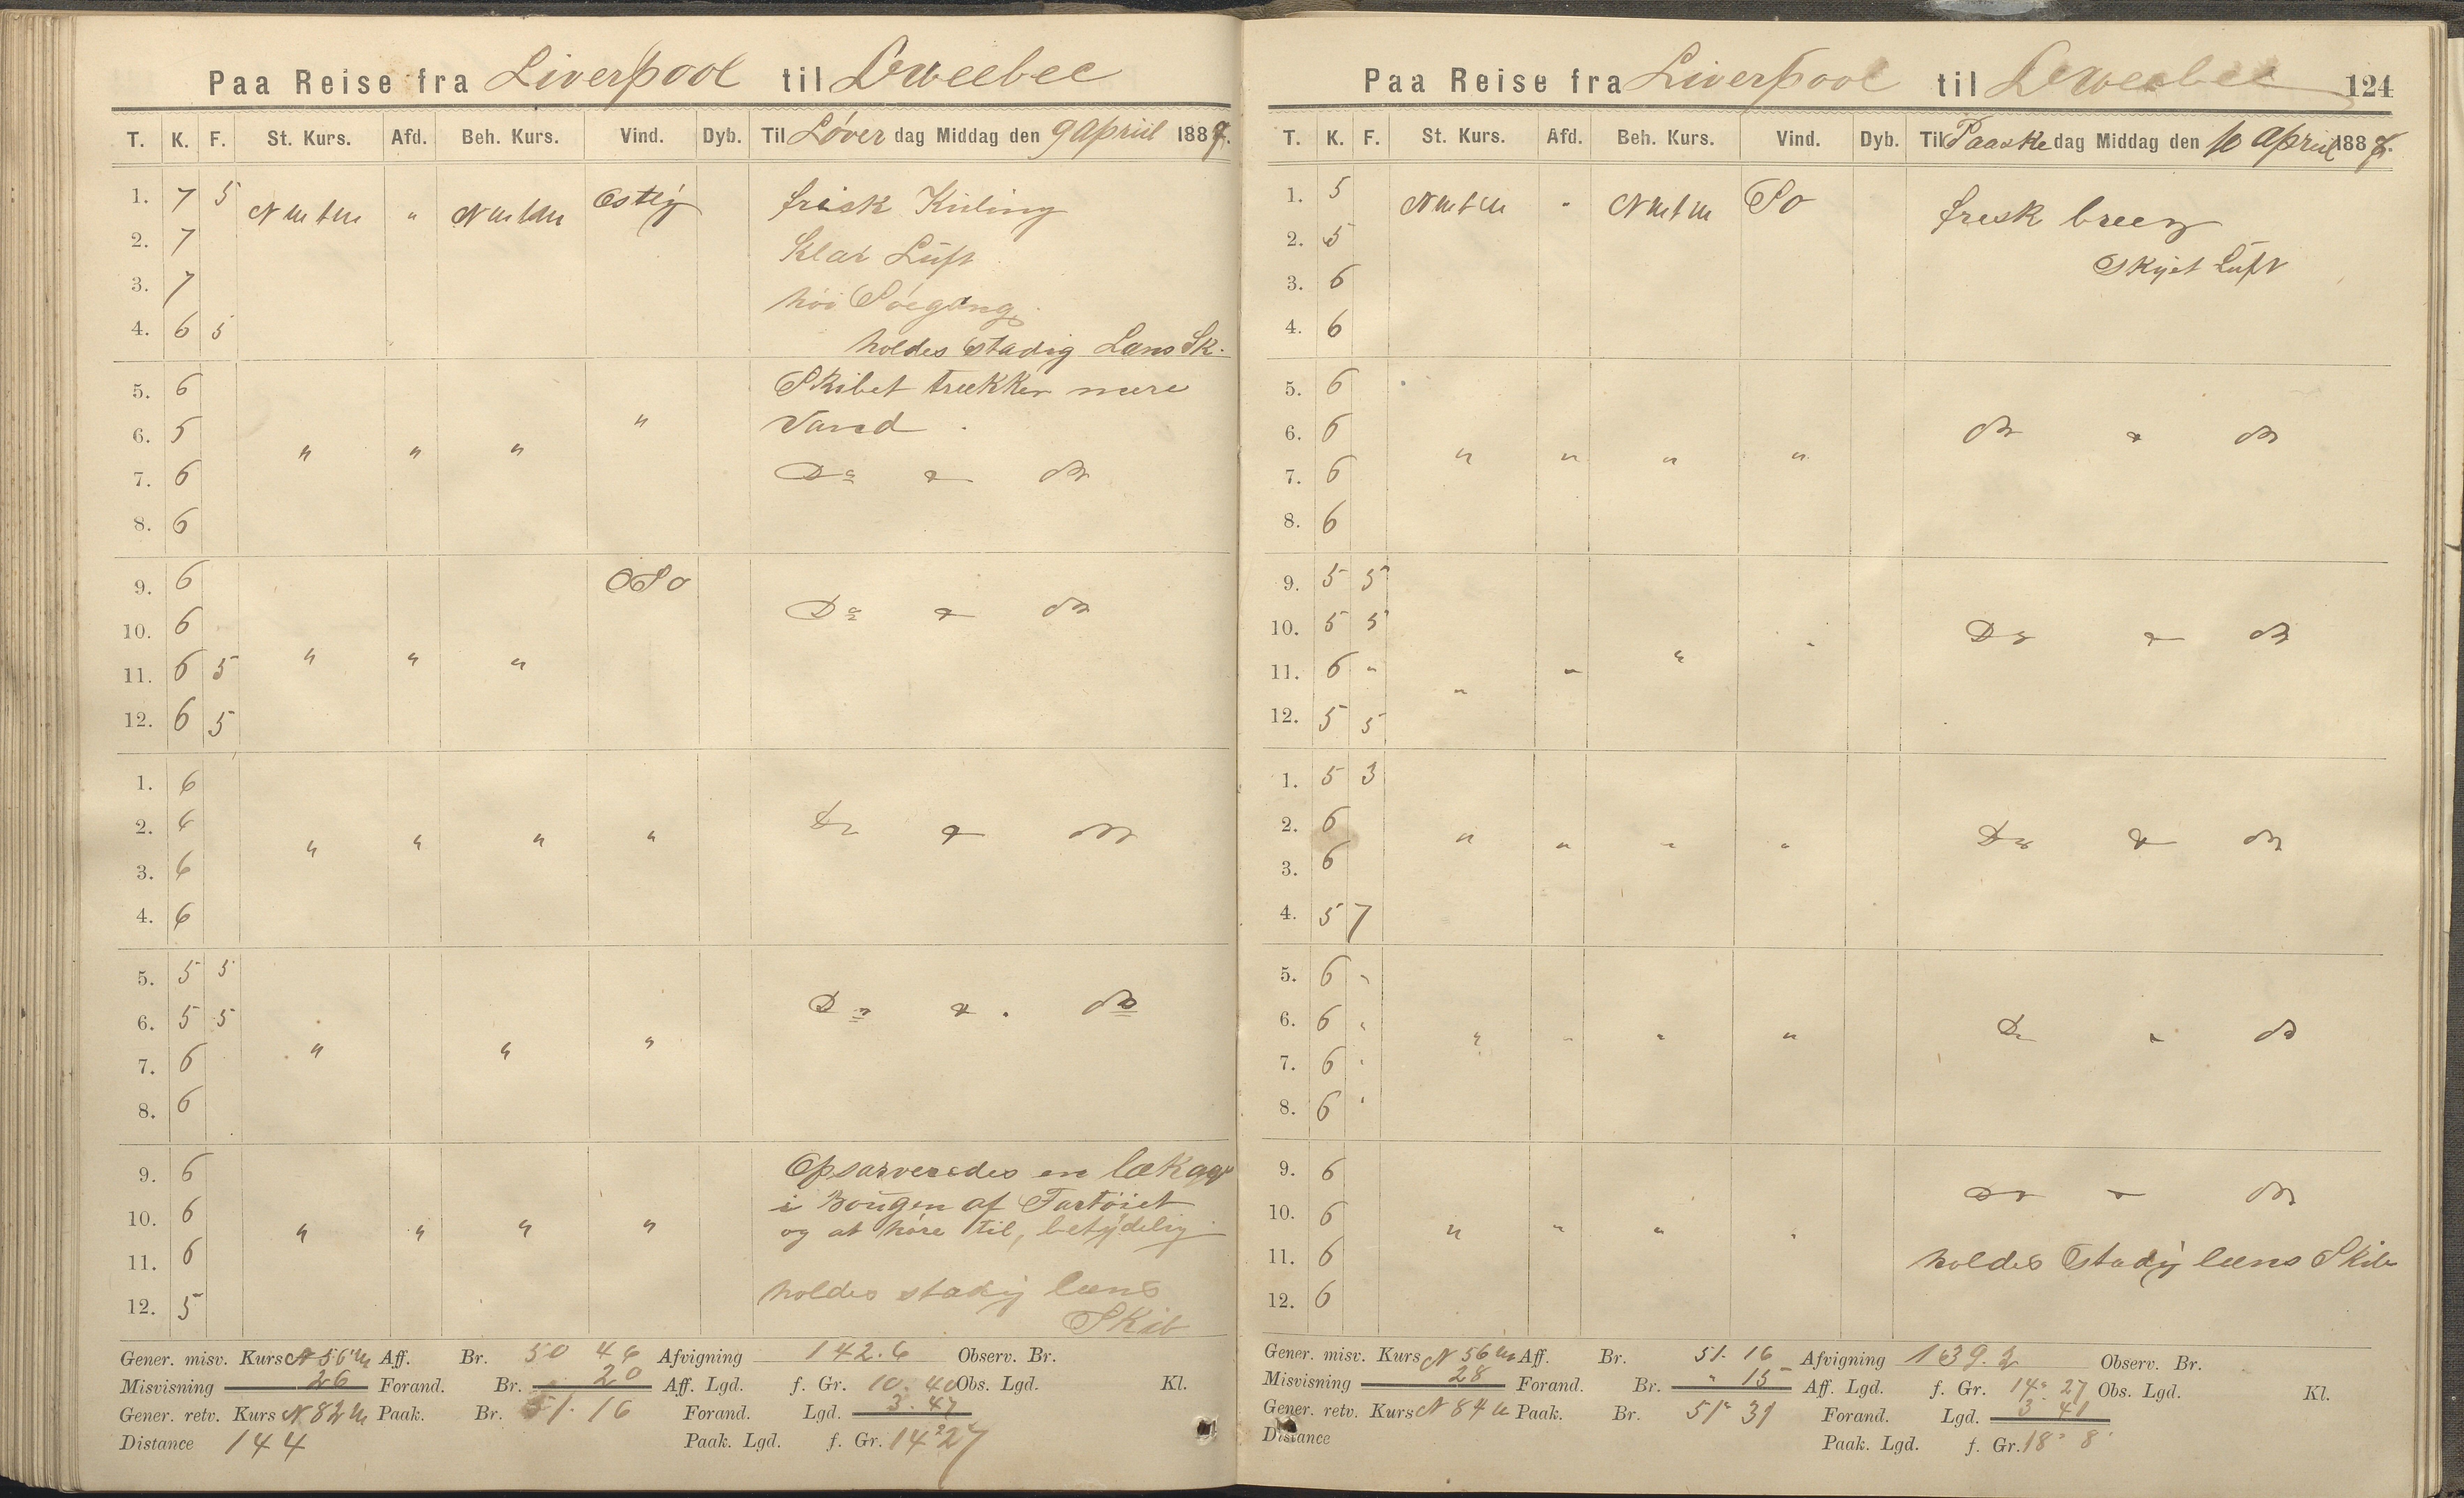 Paa Reise fra Liverpool til Qweebec
T. K. F. St. Kurs. Afd. Beh. Kurs. Vind. Dyb. Til Löver dag Middag den 9 Apriil 1887.
1. 7 5 NWtW " NWtW Ostlig frisk Kuling
2. 7 Klar Luft
3. 7 höi Söegang
4. 6 5 holdes stadig Læns Sk.
5. 6 Skibet trækker mere
6. 5 " " " " Vand
7. 6 Do & do
8. 6
9. 6 OSO
10. 6 Do & do
11. 6 5 " " "
12. 6 5
1. 6
2. 6 " " " " Do & do
3. 6
4. 6
5. 5 5
6. 5 5 Do & do
7. 6 " " "
8. 6
9. 6 Opsarveredes en lækage
i Bougen af Fartöiet
10. 6 " " " " og at höre til, betydelig
11. 6
holdes stadig læns
12. 5 Skib
Gener. misv. Kurs N 56 W Aff. Br. 50 46 Afvigning 142.6 Observ. Br.
Misvisning 26 Forand. Br. 20 Aff. Lgd. f. Gr. 10. 40 Obs. Lgd. Kl.
Gener. retv. Kurs N 82 W Paak. Br. 51. 16 Forand. Lgd. 3. 47
Distance 144 Paak. Lgd. f. Gr. 14° 27
Paa Reise fra Liverpool til Qweebec 124
T. K. F. St. Kurs. Afd. Beh. Kurs. Vind. Dyb. Til Paaske dag Middag den 10 Apriil 1887.
1. 5 NWtW " NWtW SO frisk breez
2. 5 Skyet Luft
3. 6
4. 6
5. 6
6. 6 " " " " do & do
7. 6
8. 6
9. 5 5
10. 5 5 Do & do
11. 6 " " " " "
12. 5 5
1. 5 3
2. 6 " " " " Do & do
3. 6
4. 5 7
5. 6 "
6. 6 " " " " " Do & do
7. 6 "
8. 6 "
9. 6 Do & do
10. 6 " " " "
11. 6 holdes Stadig læns Skib
12. 6
Gener. misv. Kurs N 56 W Aff. Br. 51. 16 Afvigning 139.2 Observ. Br.
Misvisning 28 Forand. Br. " 15 Aff. Lgd. f. Gr. 14° 27 Obs. Lgd. Kl.
Gener. retv. Kurs N 84 W Paak. Br. 51° 31 Forand. Lgd. 3 41
Distance Paak. Lgd. f. Gr. 18° 8'